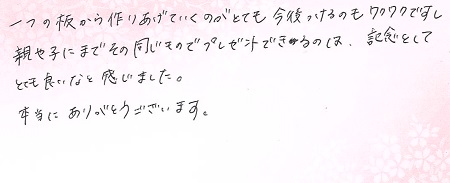 一つの板から作りあげていくのがとても今後つけるのもワクワクですし
親や子にまでその同じものでプレゼントできるのは、記念として
とても良いなと感じました。
本当にありがとうございます。